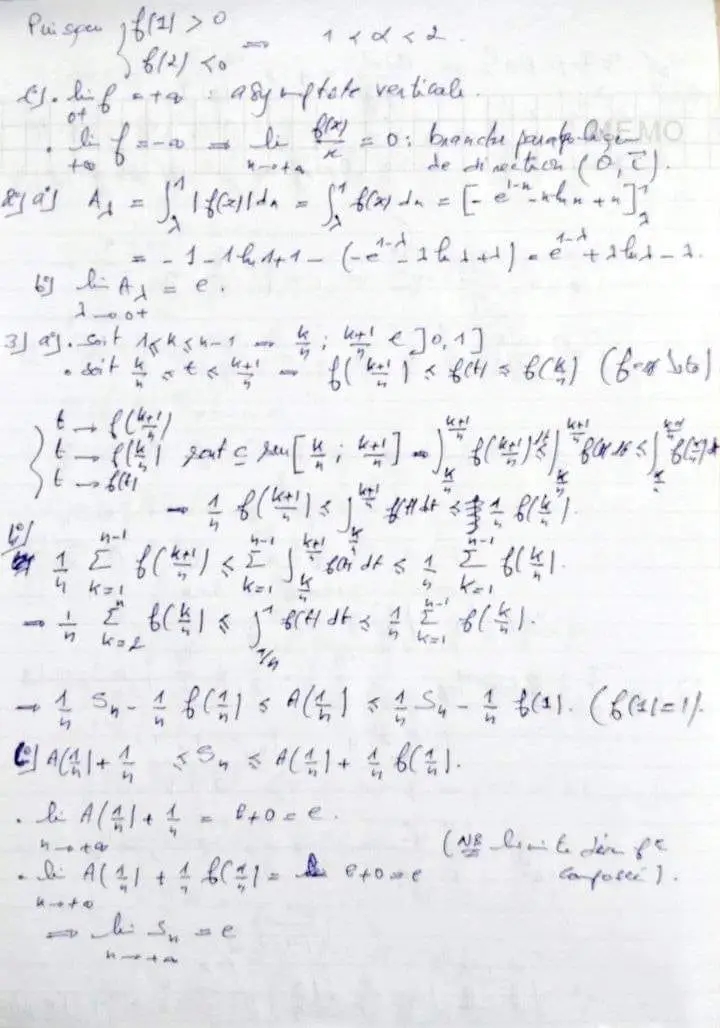 Puisque { f(1) > 0
f(2) < 0 ⇒ 1 < α < 2.
c) • lim f = +∞ : asymptote verticale.
0+
• lim f = -∞ ⇒ lim f(x)/x = 0 : branche parabolique
+∞ x→+∞ de direction (O, i⃗).
2) a) A_λ = ∫_λ^1 |f(x)| dx = ∫_λ^1 f(x) dx = [-e^{1-x} - x ln x + x]_λ^1
= -1 - 1 ln 1 + 1 - (-e^{1-λ} - λ ln λ + λ) = e^{1-λ} + λ ln λ - λ.
b) lim A_λ = e.
λ→0+
3) a) • soit 1 ≤ k ≤ n-1 ⇒ k/n ; (k+1)/n ∈ ]0, 1]
• soit k/n ≤ t ≤ (k+1)/n ⇒ f((k+1)/n) ≤ f(t) ≤ f(k/n)
{ t → f((k+1)/n)
t → f(k/n) sont c sur [k/n ; (k+1)/n] ⇒ ∫_{k/n}^{(k+1)/n} f((k+1)/n) dt ≤ ∫_{k/n}^{(k+1)/n} f(t) dt ≤ ∫_{k/n}^{(k+1)/n} f(k/n) dt
t → f(t)
→ 1/n f((k+1)/n) ≤ ∫_{k/n}^{(k+1)/n} f(t) dt ≤ 1/n f(k/n).
b)
1/n Σ_{k=1}^{n-1} f((k+1)/n) ≤ Σ_{k=1}^{n-1} ∫_{k/n}^{(k+1)/n} f(t) dt ≤ 1/n Σ_{k=1}^{n-1} f(k/n).
→ 1/n Σ_{k=2}^{n} f(k/n) ≤ ∫_{1/n}^1 f(t) dt ≤ 1/n Σ_{k=1}^{n-1} f(k/n).
→ 1/n S_n - 1/n f(1/n) ≤ A(1/n) ≤ 1/n S_n - 1/n f(1). (f(1) = 1).
c) A(1/n) + 1/n ≤ S_n ≤ A(1/n) + 1/n f(1/n).
• lim A(1/n) + 1/n = e + 0 = e.
n→+∞
(NB limite d'une fc
• lim A(1/n) + 1/n f(1/n) = e + 0 = e
composée).
n→+∞
⇒ lim S_n = e
n→+∞